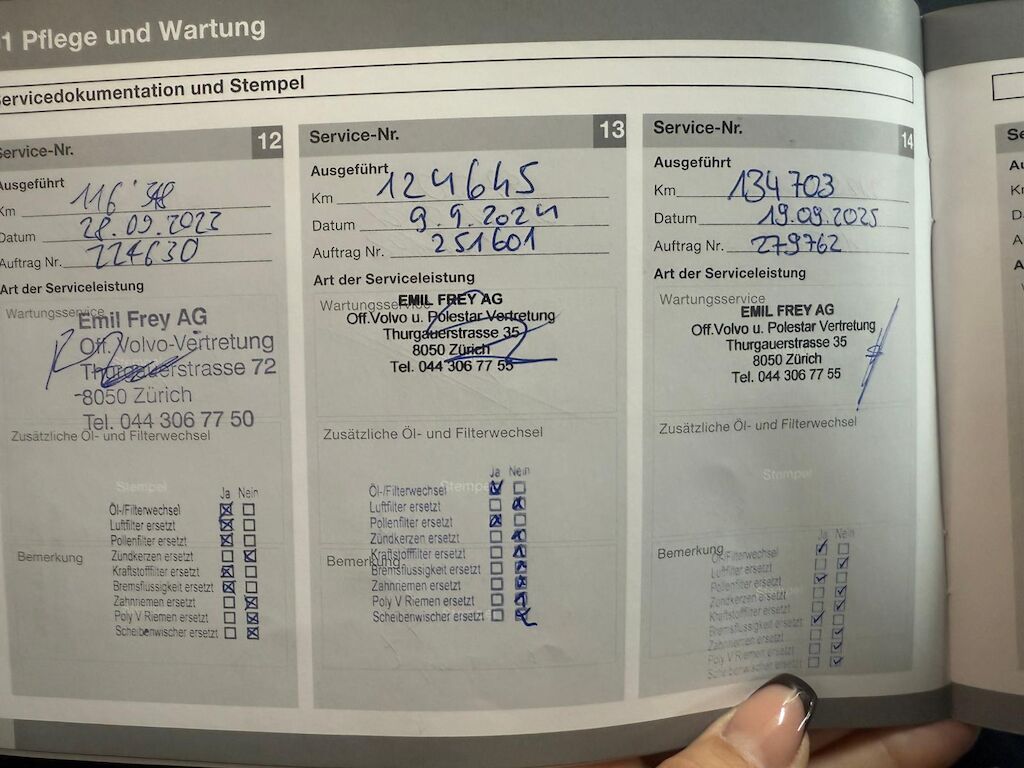 1 Pflege und Wartung
Servicedokumentation und Stempel
Service-Nr. 12
Ausgeführt
Km 116'
Datum 28.09.2023
Auftrag Nr. 224630
Art der Serviceleistung
Wartungsservice
Emil Frey AG
Off. Volvo-Vertretung
Thurgauerstrasse 72
8050 Zürich
Tel. 044 306 77 50
Zusätzliche Öl- und Filterwechsel
Stempel
Ja Nein
Öl-/Filterwechsel
Luftfilter ersetzt
Pollenfilter ersetzt
Bemerkung
Zündkerzen ersetzt
Kraftstofffilter ersetzt
Bremsflüssigkeit ersetzt
Zahnriemen ersetzt
Poly V Riemen ersetzt
Scheibenwischer ersetzt
Service-Nr. 13
Ausgeführt
Km 124645
Datum 9.9.2024
Auftrag Nr. 251601
Art der Serviceleistung
Wartungsservice
EMIL FREY AG
Off.Volvo u. Polestar Vertretung
Thurgauerstrasse 35
8050 Zürich
Tel. 044 306 77 55
Zusätzliche Öl- und Filterwechsel
Ja Nein
Stempel
Öl-/Filterwechsel
Luftfilter ersetzt
Pollenfilter ersetzt
Zündkerzen ersetzt
Bemerkung
Kraftstofffilter ersetzt
Bremsflüssigkeit ersetzt
Zahnriemen ersetzt
Poly V Riemen ersetzt
Scheibenwischer ersetzt
Service-Nr. 14
Ausgeführt
Km 134703
Datum 19.09.2025
Auftrag Nr. 279762
Art der Serviceleistung
Wartungsservice
EMIL FREY AG
Off.Volvo u. Polestar Vertretung
Thurgauerstrasse 35
8050 Zürich
Tel. 044 306 77 55
Zusätzliche Öl- und Filterwechsel
Stempel
Ja Nein
Bemerkung
Öl-/Filterwechsel
Luftfilter ersetzt
Pollenfilter ersetzt
Zündkerzen ersetzt
Kraftstofffilter ersetzt
Bremsflüssigkeit ersetzt
Zahnriemen ersetzt
Poly V Riemen ersetzt
Scheibenwischer ersetzt